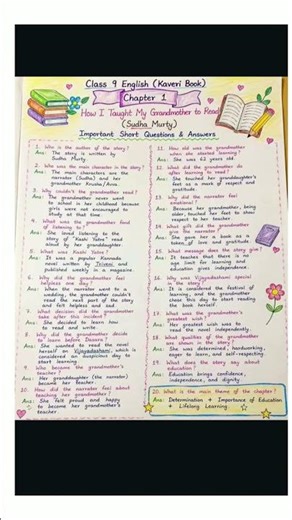 Class 9 English (Kaveri Book)
Chapter 1
How I Taught My Grandmother to Read
(Sudha Murty)
Important Short Questions & Answers
1. Who is the author of the story?
Ans: The story is written by
Sudha Murty.
2. Who was the main character in the story?
Ans: The main characters are the
narrator (Sudha) and her
grandmother Krushta/Avva.
3. Why couldn't the grandmother read?
Ans: The grandmother never went
to school in her childhood because
girls were not encouraged to
study at that time.
4. What was the grandmother fond
of listening to?
Ans: She loved listening to the
story of "Kashi Yatra" read
aloud by her granddaughter.
5. What was Kashi Yatra?
Ans: It was a popular Kannada
novel written by Triveni and
published weekly in a magazine.
6. Why did the grandmother feel
helpless one day?
Ans: When the narrator went to a
wedding, the grandmother couldn't
read the next part of the story
and felt helpless and sad.
7. What decision did the grandmother
take after this incident?
Ans: She decided to learn how
to read and write.
8. Why did the grandmother decide
to learn before Dasara?
Ans: She wanted to read the novel
herself on Vijayadashami, which is
considered an auspicious day to
start learning.
9. Who became the grandmother's
teacher?
Ans: Her granddaughter (the narrator)
became her teacher.
10. How did the narrator feel about
teaching her grandmother?
Ans: She felt proud and happy
to become her grandmother's
teacher.
11. How old was the grandmother
when she started learning?
Ans: She was 62 years old.
12. What did the grandmother do
after learning to read?
Ans: She touched her granddaughter's
feet as a mark of respect and
gratitude.
13. Why did the narrator feel
emotional?
Ans: Because her grandmother, being
elder, touched her feet to show
respect to her teacher.
14. What gift did the grandmother
give the narrator?
Ans: She gave her a book as a
token of love and gratitude.
15. What message does the story give?
Ans: It teaches that there is no
age limit for learning and
education gives independence.
16. Why was Vijayadashami special
in the story?
Ans: It is considered the festival of
learning, and the grandmother
chose this day to start reading
the book herself.
17. What was the grandmother's
greatest wish?
Ans: Her greatest wish was to
read the novel independently.
18. What qualities of the grandmother
are shown in the story?
Ans: She was determined, hardworking,
eager to learn, and self-respecting.
19. What does the story say about
education?
Ans: Education brings confidence,
independence, and dignity.
20. What is the main theme of the chapter?
Ans: Determination + Importance of Education
+ Lifelong Learning.